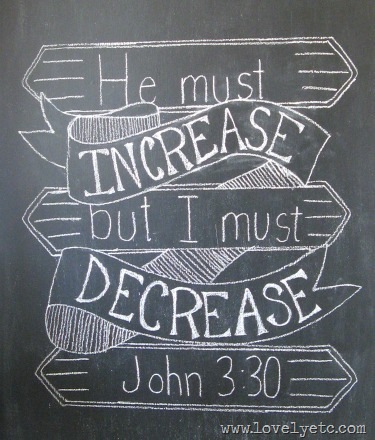 He must
INCREASE
but I must
DECREASE
John 3:30
www.lovelyetc.com